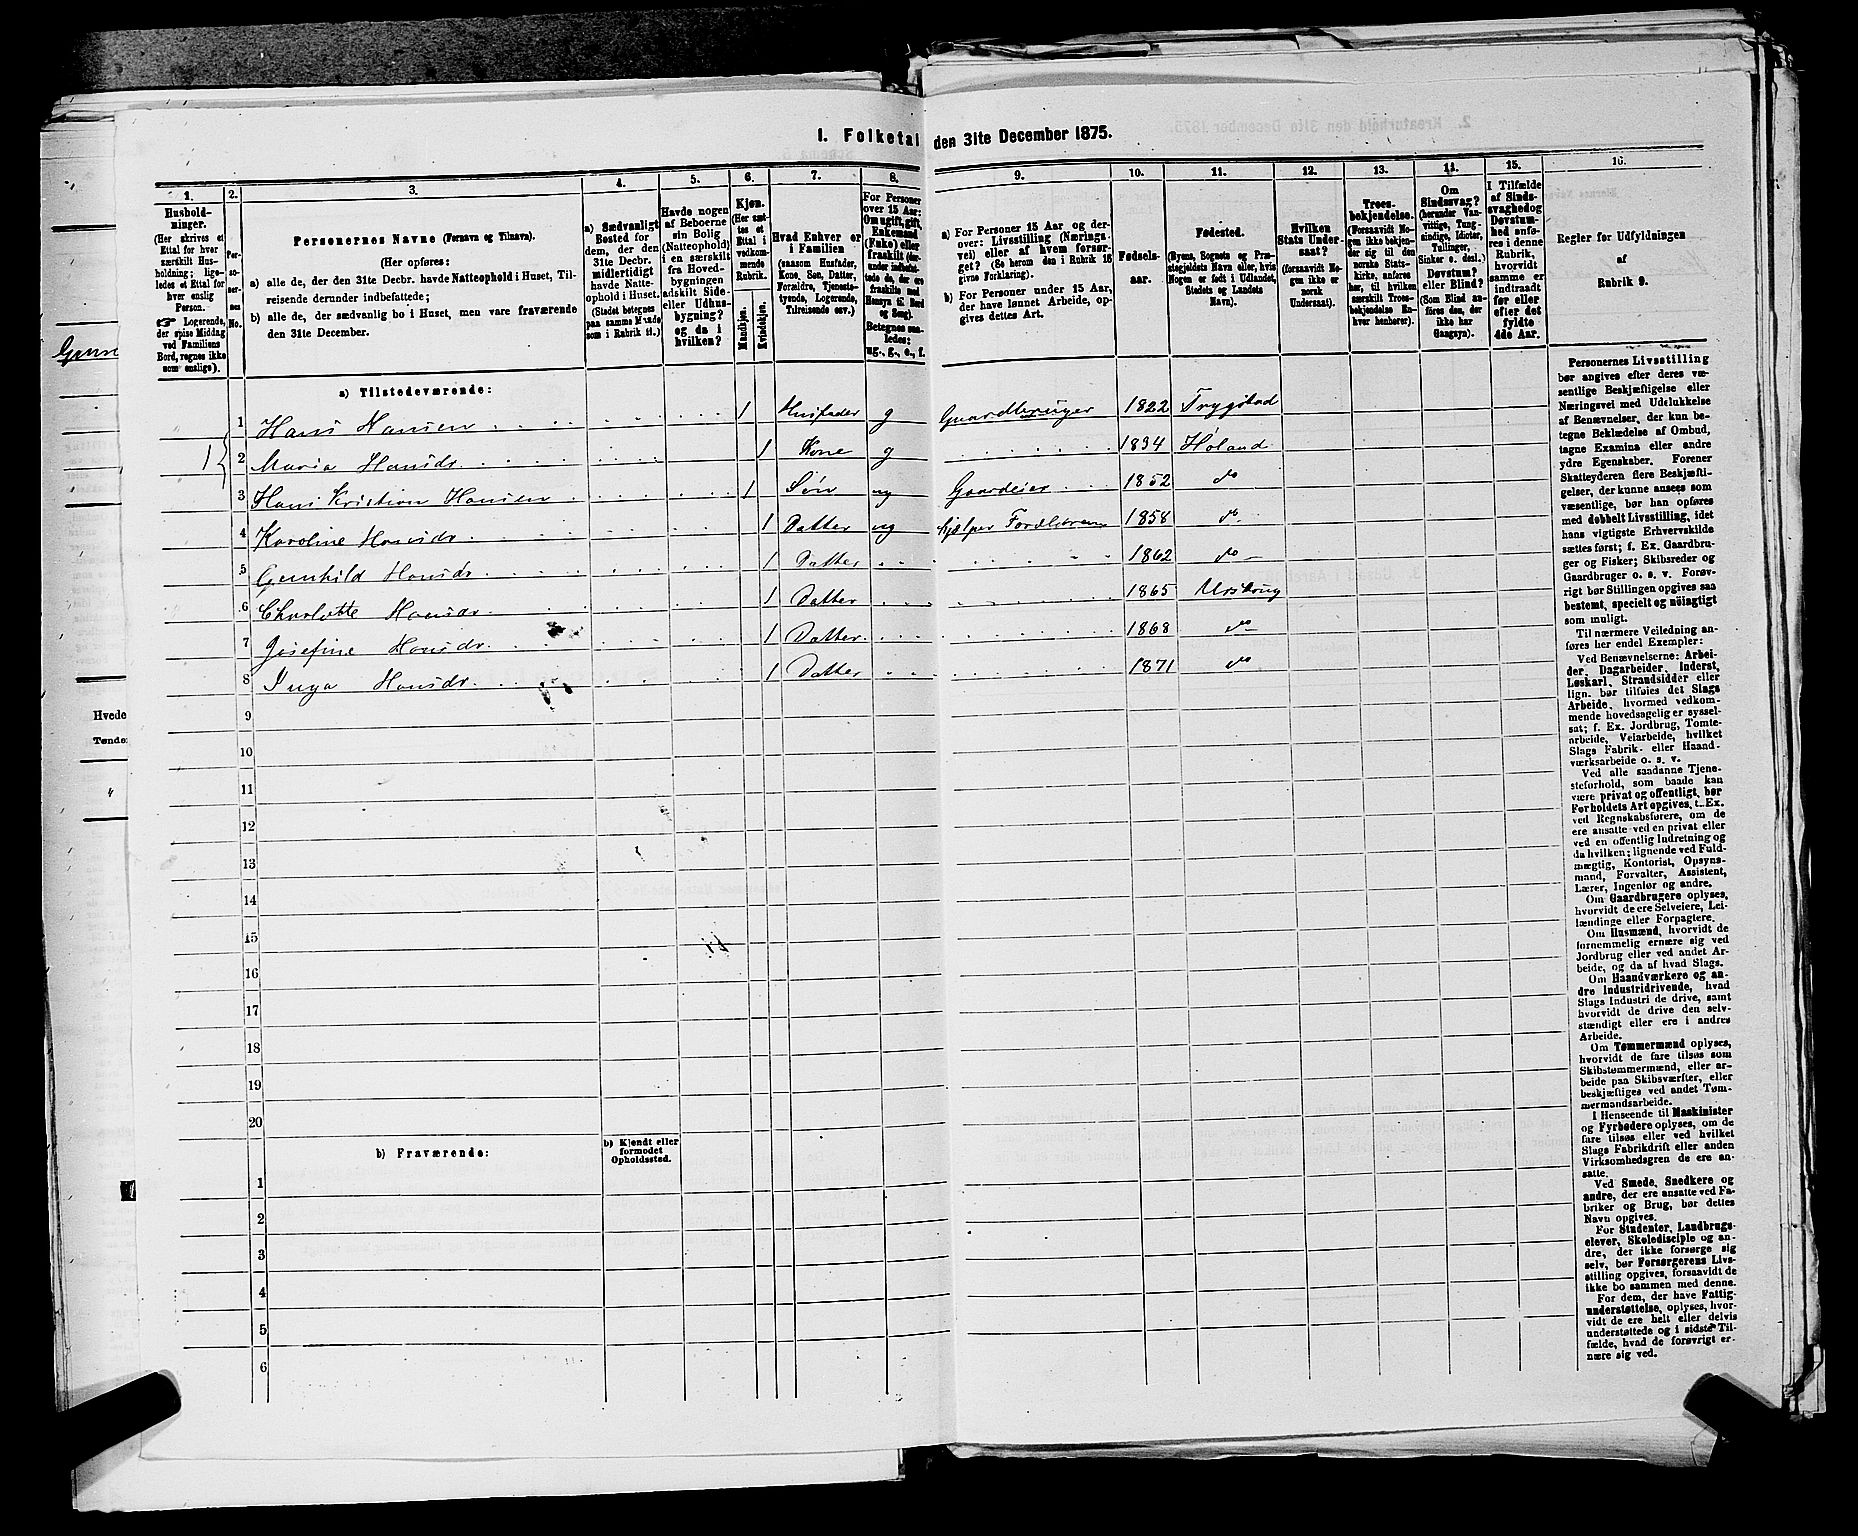 I. Folketal den 31te December 1875.
1.
Husholdninger.
(Her skrives et
Ettal for hver
særskilt Husholdning;
ligeledes et Ettal for
hver enslig
Person.
Logerende,
der spise Middag
ved Familiens
Bord, regnes ikke
som enslige).
2.
Personernes
No.
3.
Personernes Navne (Fornavn og Tilnavn).
(Her opføres:
a) alle de, der den 31te Decbr. havde Natteophold i Huset, Tilreisende derunder indbefattede;
b) alle de, der sædvanlig bo i Huset, men vare fraværende
den 31te December.
4.
a) Sædvanligt
Bosted for
dem, der den
31te Decbr.
midlertidigt
havde Natteophold i Huset.
(Stedet betegnes
paa samme Maade
som i Rubrik 11.)
5.
Havde nogen
af Beboerne
sin Bolig
(Natteophold)
i en særskilt
fra Hovedbygningen
adskilt Side- eller Udhusbygning?
og da i
hvilken?
6.
Kjøn.
(Her sættes et
Ettal i
vedkommende
Rubrik.
Mandkjøn.
Kvindekjøn.
7.
Hvad Enhver er
i Familien
(saasom Husfader,
Kone, Søn, Datter,
Forældre, Tjenestetyende, Logerende,
Tilreisende osv.)
8.
For Personer
over 15 Aar:
Om ugift, gift,
Enkemand
(Enke) eller
fraskilt
Betegnes saaledes:
ug., g., e., f.
9.
a) For Personer 15 Aar og derover: Livsstilling (Næringsvei) eller af hvem forsørget? (Se herom den i Rubrik 16
givne Forklaring).
b) For Personer under 15 Aar,
der have lønnet Arbeide, opgives dettes Art.
10.
Fødselsaar.
11.
Fødested.
(Byens, Sognets og Præstegjeldets Navn eller, hvis
Nogen er født i Udlandet,
Stedets og Landets
Navn).
12.
Hvilken
Stats Undersaat?
(forsaavidt Nogen ikke er
norsk
Undersaat).
13.
Troesbekjendelse.
(Forsaavidt Nogen ikke bekjender sig til den
norske Statskirke, anføres
her, til hvilken
særskilt Troesbekjendelse Enhver henhører).
14.
Om
Sindssvag?
(herunder Vanvittige, Tungsindige, Idioter,
Tullinger,
Sinker o. desl.)
Døvstum?
eller Blind?
(Som Blind anføres den, der
ikke har
Gangsyn).
15.
I Tilfælde
af Sindssvaghed og
Døvstumhed anføres i denne
Rubrik,
hvorvidt
samme er
indtraadt
før eller
efter det
fyldte
4de Aar.
16.
Regler for Udfyldningen
af
Rubrik 9.
a) Tilstedeværende:
1 Hans Hansen 1 Husfader g Gaardbruger 1822 Trygstad
1 2 Maria Hansdr. 1 Kone g 1834 Høland
3 Hans Kristian Hansen 1 Søn ug Gaardeier 1852 do
4 Karoline Hansdr. 1 Datter ug hjelper Forældrene 1858 do
5 Gunhild Hansdr. 1 Datter 1862 do
6 Charlotte Hansdr. 1 Datter 1865 Urskoug
7 Josefine Hansdr. 1 Datter 1868 do
8 Inga Hansdr. 1 Datter 1871 do
9
10
11
12
13
14
15
16
17
18
19
20
b) Fraværende:
b) Kjendt eller
formodet
Opholdssted.
1
2
3
4
5
6
Personernes Livsstilling
bør angives efter deres væsentlige Beskjæftigelse eller
Næringsvei med Udelukkelse
af Benævnelser, der kun betegne Beklædelse af Ombud,
tagne Examina eller andre
ydre Egenskaber. Forener
Skatteyderen flere Beskjæftigelser, der kunne ansees som
væsentlige, bør han opføres
med dobbelt Livsstilling, idet
hans vigtigste Erhvervskilde
sættes først; f. Ex. Gaardbruger og Fisker; Skibsreder og
Gaardbruger o. s. v. Forøvrigt bør Stillingen opgives saa
bestemt, specielt og nöiagtigt
som muligt.
Til nærmere Veiledning anføres her endel Exempler:
Ved Benævnelserne: Arbeider, Dagarbeider, Inderst,
Løskarl, Strandsidder eller
lign. bør tilføies det Slags
Arbeide, hvormed vedkommende hovedsagelig er sysselsat; f. Ex. Jordbrug, Tomtearbeide, Veiarbeide, hvilket
Slags Fabrik- eller Haandværksarbeide o. s. v.
Ved alle saadanne Tjenesteforhold, som baade kan
være privat og offentligt, bør
Forholdets Art opgives, t. Ex.
ved Regnskabsførere, om de
ere ansatte ved en privat eller
ved en offentlig Indretning og
da hvilken; lignende ved Fuldmægtig, Kontorist, Opsynsmand, Forvalter, Assistent,
Lærer, Ingeniør og andre.
Om Gaardbrugere oplyses,
hvorvidt de ere Selveiere, Leilændinge eller Forpagtere.
Om Husmænd, hvorvidt de
fornemmelig ernære sig ved
Jordbrug eller ved andet Arbeide, og da af hvad Slags.
Om Haandværkere og andre Industridrivende, hvad
Slags Industri de drive, samt
hvorvidt de drive den selvstændigt eller ere i andres
Arbeide.
Om Tømmermænd oplyses,
hvorvidt de fare tilsøs som
Skibstømmermænd, eller arbeide paa Skibsværfter, eller
beskjæftiges ved andet Tømmermandsarbeide.
I Henseende til Maskinister
og Fyrbødere oplyses, om de
fare tilsøs eller ved hvilket
Slags Fabrikdrift eller anden
Virksomhedsgren de ere ansatte.
Ved Smede, Snedkere og
andre, der ere ansatte ved Fabriker og Brug, bør dettes
Navn opgives.
For Studenter, Landbrugselever, Skoledisciple og andre, der ikke forsørge sig
selv, bør Forsørgerens Livsstilling opgives, forsaavidt de
ikke bo sammen med denne.
For dem, der have Fattigunderstøttelse, oplyses, hvorvidt de ere helt eller delvis
understøttede og i sidste Tilfælde, hvad de forøvrigt ernære sig ved.
Hvede